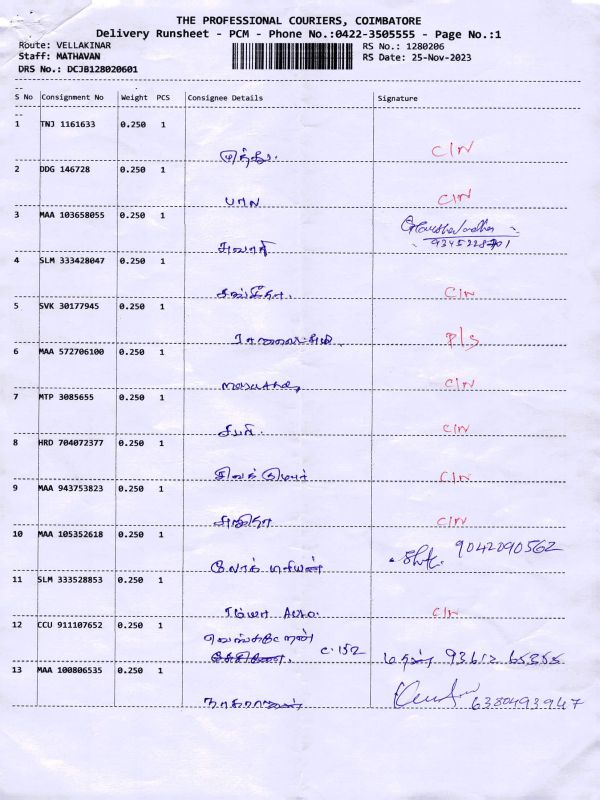 THE PROFESSIONAL COURIERS, COIMBATORE
Delivery Runsheet - PCM - Phone No.:0422-3505555 - Page No.:1
Route: VELLAKINAR RS No.: 1280206
Staff: MATHAVAN RS Date: 25-Nov-2023
DRS No.: DCJB128020601
S No Consignment No Weight PCS Consignee Details Signature
1 TNJ 1161633 0.250 1
முத்து. C/N
2 DDG 146728 0.250 1
பாலா C/N
3 MAA 103658055 0.250 1
4 SLM 333428047 0.250 1
C/N
5 SVK 30177945 0.250 1
P/S
6 MAA 572706100 0.250 1
C/N
7 MTP 3085655 0.250 1
C/N
8 HRD 704072377 0.250 1
சிவக்குமார் C/N
9 MAA 943753823 0.250 1
C/N
10 MAA 105352618 0.250 1
9042090562
11 SLM 333528853 0.250 1
ரம்யா Auto. C/N
12 CCU 911107652 0.250 1
C.152
13 MAA 100806535 0.250 1
நாகராஜன் 6380493947